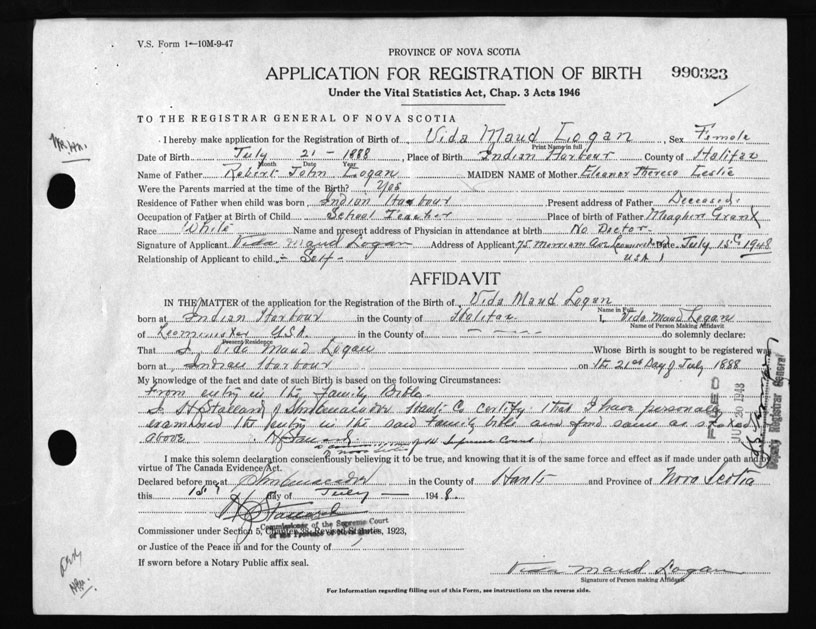 V.S. Form 1—10M-9-47
PROVINCE OF NOVA SCOTIA
APPLICATION FOR REGISTRATION OF BIRTH 990323
Under the Vital Statistics Act, Chap. 3 Acts 1946
TO THE REGISTRAR GENERAL OF NOVA SCOTIA
I hereby make application for the Registration of Birth of Vida Maud Logan, Sex Female
Print Name in full
Date of Birth July 21 - 1888, Place of Birth Indian Harbour County of Halifax
Month Date Year
Name of Father Robert John Logan MAIDEN NAME of Mother Eleanor Theresa Leslie
Were the Parents married at the time of the Birth? Yes
Residence of Father when child was born Indian Harbour Present address of Father Deceased
Occupation of Father at Birth of Child School Teacher Place of birth of Father Grant
Race White Name and present address of Physician in attendance at birth No Doctor
Signature of Applicant Vida Maud Logan Address of Applicant 75 Merriam Ave Date July 15 1948
Relationship of Applicant to child - Self - USA
AFFIDAVIT
IN THE MATTER of the application for the Registration of the Birth of Vida Maud Logan
Name in Full
born at Indian Harbour in the County of Halifax I, Vida Maud Logan
Name of Person Making Affidavit
of Leominster USA in the County of - - - - do solemnly declare:
Present Residence
That I Vida Maud Logan Whose Birth is sought to be registered was
born at Indian Harbour on the 21st Day of July 1888
My knowledge of the fact and date of such Birth is based on the following Circumstances:
From entry in the Family Bible
I H Stallard of Hants Co certify that I have personally
examined the entry in the said family bible and find same as stated
above. H Stallard
of the Supreme Court
I make this solemn declaration conscientiously believing it to be true, and knowing that it is of the same force and effect as if made under oath and by
virtue of The Canada Evidence Act.
Declared before me at in the County of Hants and Province of Nova Scotia
this 15 day of July 1948.
H Stallard
Commissioner of the Supreme Court
of the Province of Nova Scotia
Commissioner under Section 5, Chapter 38, Revised Statutes, 1923,
or Justice of the Peace in and for the County of
If sworn before a Notary Public affix seal.
Vida Maud Logan
Signature of Person making Affidavit
For Information regarding filling out of this Form, see instructions on the reverse side.
FILED
JUL 20 1948
Deputy Registrar General